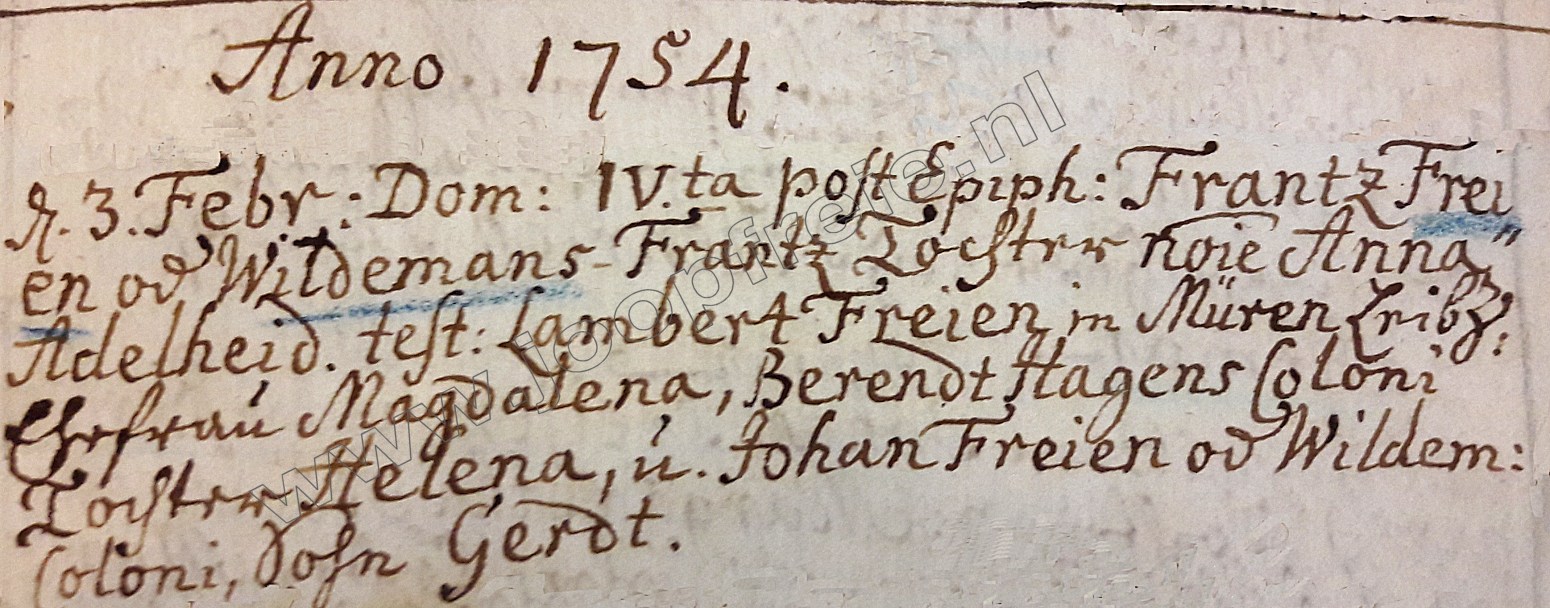 Anno 1754.
d. 3. Febr: Dom: IV.ta post Epiph: Frantz Frei
en od Wildemans-Frantz Tochter noie Anna"
Adelheid. test: Lambert Freien in Müren Leibz:
Ehefrau Magdalena, Berendt Hagens Coloni
Tochter Helena, u. Johan Freien od Wildem:
Coloni, Sohn Gerdt.
www.joopfreie.nl